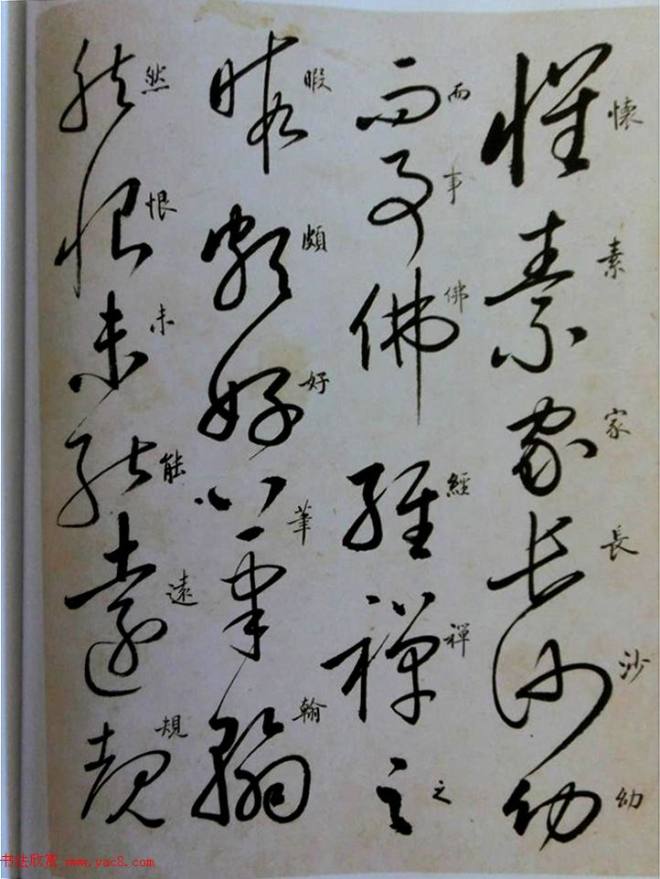 懷素家長沙幼
懷素家長沙幼
而事佛經禪之
而事佛經禪之
暇頗好筆翰
暇頗好筆翰
然恨未能遠覩
然恨未能遠規
书法欣赏 www.yac8.com